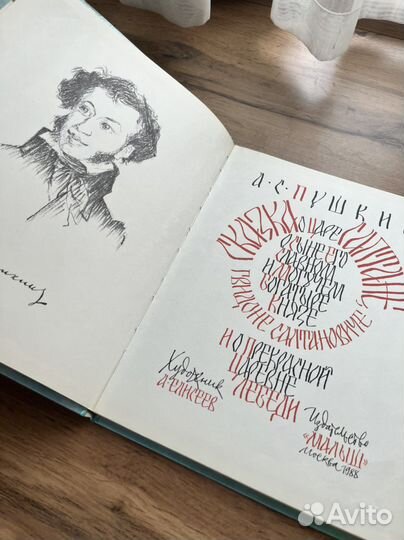 А·С·ПУШКИ
СКАЗКА
О ЦАРЕ
САЛТАНЕ
О СЫНЕ ЕГО
СЛАВНОМ
И МОГУЧЕМ
БОГАТЫРЕ
КНЯЗЕ
ГВИДОНЕ САЛТАНОВИЧЕ
И О ПРЕКРАСНОЙ
ЦАРЕВНЕ
ЛЕБЕДИ
Художник
А·ЕЛИСЕЕВ
Издательство
«МАЛЫШ»
Москва 1988
Avito